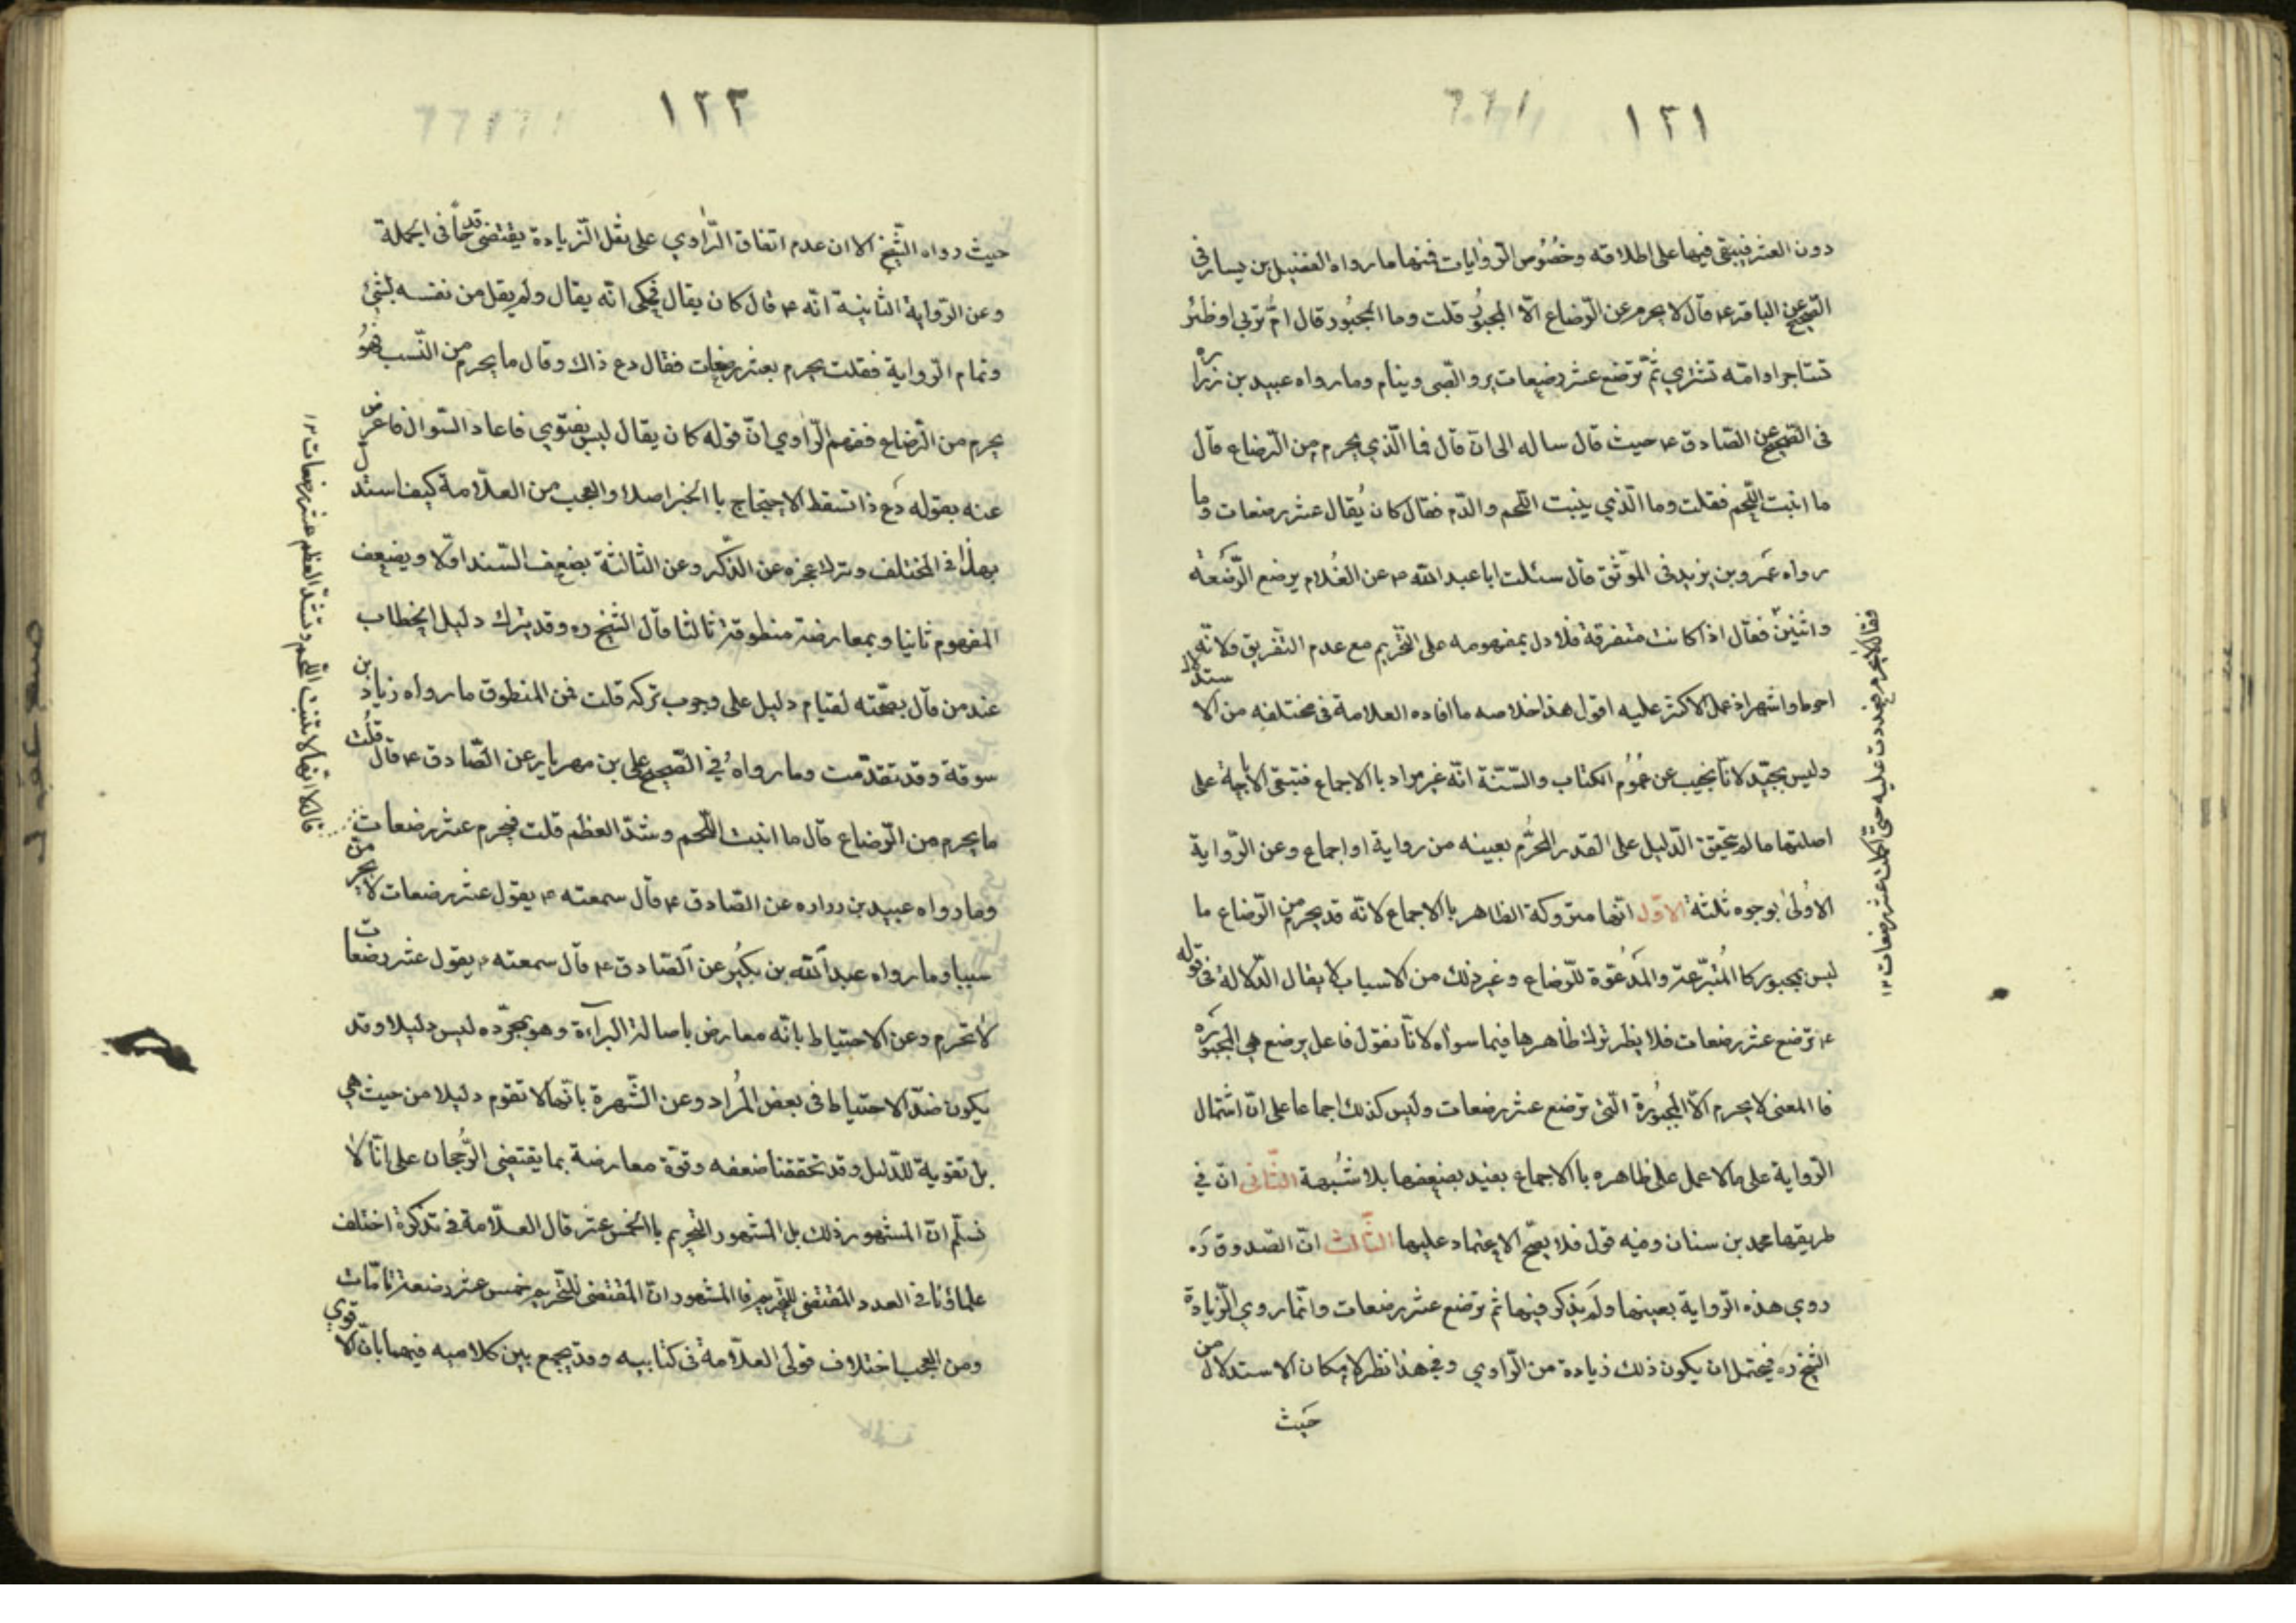 ١٢١
دون العشر فيبقى فيها على اطلاقه وخصُوص الروايات فمنها ما رواه الفضيل بن يسار فى
الصحيح عن الباقر ع قال لا يحرم من الرّضاع الّا المجبُور قلت وما المجبُور قال امّ تربي او ظئر
تستاجر او امة تشتري ثمّ ترضع عشر رضعات يروى الصّبى وينام وما رواه عبيد بن زرارة
فى الصحيح عن الصّادق ع حيث قال ساله الى ان قال فما الّذي يحرم من الرّضاع قال
ما انبت اللّحم فقلت وما الّذي ينبت اللّحم والدّم فقال كان يُقال عشر رضعات وما
رواه عمرو بن يزيد فى الموثّق قال سئلت ابا عبد اللّه ع عن الغُلام يرضع الرّضعة
واثنين فقال اذا كانت متفرقة فلا دل بمفهومه على التّحريم مع عدم التفريق ولانّه
احوط واشهر اذ عمل الاكثر عليه اقول هذا خلاصه ما افاده العلامة فى مختلفه من الاستدلال
وليس بجيّد لانّا نجيب عن عمُوم الكتاب والسّنّة انّه غير مراد باالاجماع فتبقى الاباحة على
اصلتها ما لم يتحقق الدّليل على القدر المحرّم بعينه من رواية او اجماع وعن الرّواية
الاُولىٰ بوجوه ثلثة الاوّل انّها متروكة الظاهر باالاجماع لانّه قد يحرم من الرّضاع ما
ليس بمجبور كاالمُتبرّعة والمَدعُوّة للرّضاع وغير ذلك من الاسباب لا يقال الدّلالة فى قوله
ع ترضع عشر رضعات فلا يظر ترك ظاهرها فيما سواه لانّا نقول فاعل يرضع هي المجبورة
فاالمعنى لا يحرم الّا المجبُورة الّتى ترضع عشر رضعات وليس كذلك اجماعا على انّ اشتمال
الرّواية على ما لا عمل على ظاهره باالاجماع يفيد بضعيفها بلا شُبهة الثّانى انّ في
طريقها محمد بن سنان وفيه قول فلا يصحّ الاعتماد عليها الثّالث انّ الصّدوق ره
روي هذه الرّواية بعينها ولم يذكر فيها ثم ترضع عشر رضعات وانّما روي الزّيادة
الشّيخ ره فيحتمل ان يكون ذلك زيادة من الرّاوي وفي هذا نظر لامكان الاستدلال من
حيث
فقال لا يحرم فعددت عليه حتّى اكملت عشر رضعات ١٢
١٢٢
حيث رواه الشّيخ الا ان عدم اتفاق الرّاوي على نقل الزّيادة يقتضى قدحاً فى الجملة
وعن الرّواية الثّانية انّه ع قال كان يقال فحكى انّه يقال ولم يقل من نفسه بشئ
وتمام الرّواية فقلت يحرم بعشر رضعات فقال دع ذاك وقال ما يحرم من النّسب فهُو
يحرم من الرّضاع ففهم الرّاوي انّ قوله كان يقال ليس بفتوي فاعاد السّوال فاعرض
عنه بقوله دع ذا تسقط الاحتجاج باالخبر اصلا والعجب من العلّامة كيف استدل
بهذا فى المختلف وترك عجزه عن الذّكر وعن الثالثة بضعف السّند اوّلا ويضعف
المفهوم ثانيا وبمعارضة منطوقة ثالثا قال الشّيخ ره وقد يترك دليل الخطاب
عند من قال بصحّته لقيام دليل على وجوب تركه قلت فمن المنطوق ما رواه زياد بن
سوقة وقد تقدّمت وما رواهُ في الصّحيح على بن مهزيار عن الصّادق ع قال قلت
ما يحرم من الرّضاع قال ما انبت اللّحم وشدّ العظم قلت فيحرم عشر رضعات
وما رواه عبيد بن زراره عن الصّادق ع قال سمعته ع يقول عشر رضعات لا يحرمن
سيبا وما رواه عبد اللّه بن بكير عن الصّادق ع قال سمعته ع يقول عشر رضعات
لا تحرم وعن الاحتياط بانّه معارض باصالة البرآءة وهو بمجرّده ليس دليلا وقد
يكون ضدّ الاحتياط فى بعض المُراد وعن الشّهرة بانّها لا تقوم دليلا من حيث هي
بل تقوية للدّليل وقد تحققنا ضعفه وقوّة معارضة بما يقتضى الرّجحان على انّا لا
نسلّم انّ المشهور ذلك بل المشهور التّحريم باالخمس عشر قال العلّامة فى تذكرة اختلف
علماؤنا فى العدد المقتضى للتّحريم فاالمشهور انّ المقتضى للتّحريم خمس عشر رضعة تامّات
ومن العجب اختلاف قولى العلّامة فى كتابيه وقد يجمع بين كلاميه فيهما بانّ الاقوي
قال لا انّها لا تنبت اللّحم وتشدّ العظم عشر رضعات ١٢